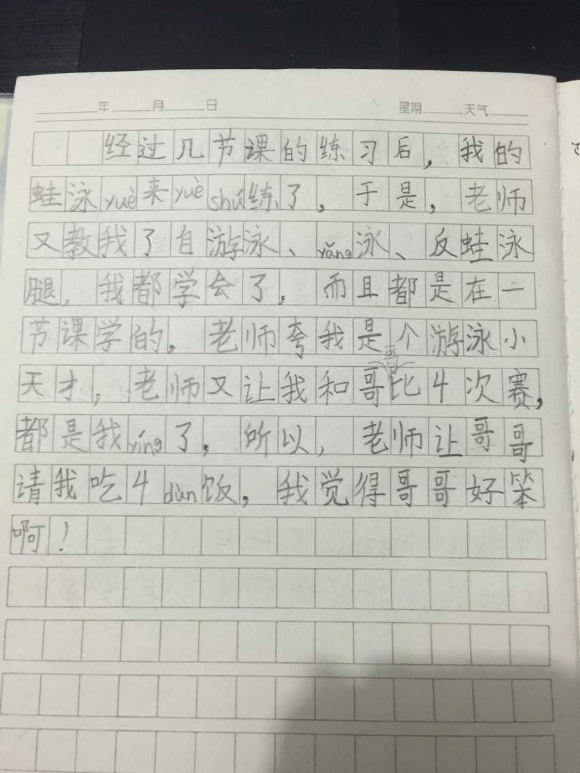 年 月 日 星期 天气
经过几节课的练习后，我的
蛙泳yuè来yuè shú练了，于是，老师
又教我了自游泳、yǎng泳、反蛙泳
腿，我都学会了，而且都是在一
节课学的。老师夸我是个游泳小
天才，老师又让我和哥哥比4次赛，
都是我yíng了，所以，老师让哥哥
请我吃4dùn饭，我觉得哥哥好笨
啊！